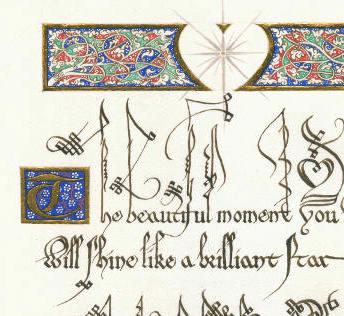 The beautiful moment you
Will Shine like a brilliant Star